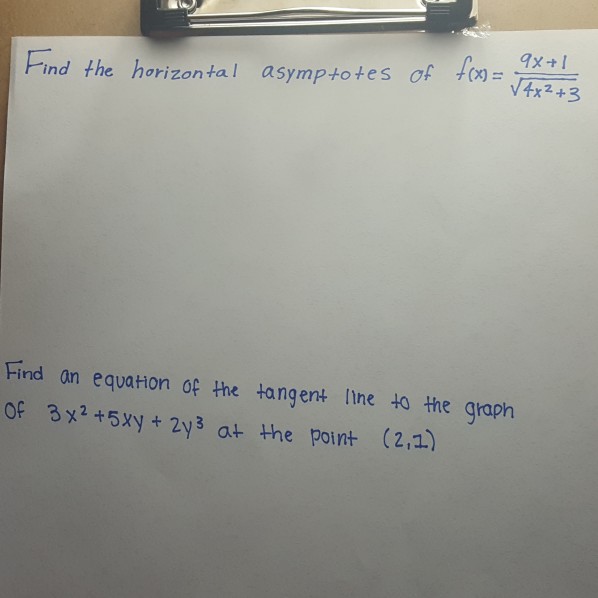 Find the horizontal asymptotes of f(x) = 9x+1 / √4x²+3
Find an equation of the tangent line to the graph
Of 3x² + 5xy + 2y³ at the point (2,1)